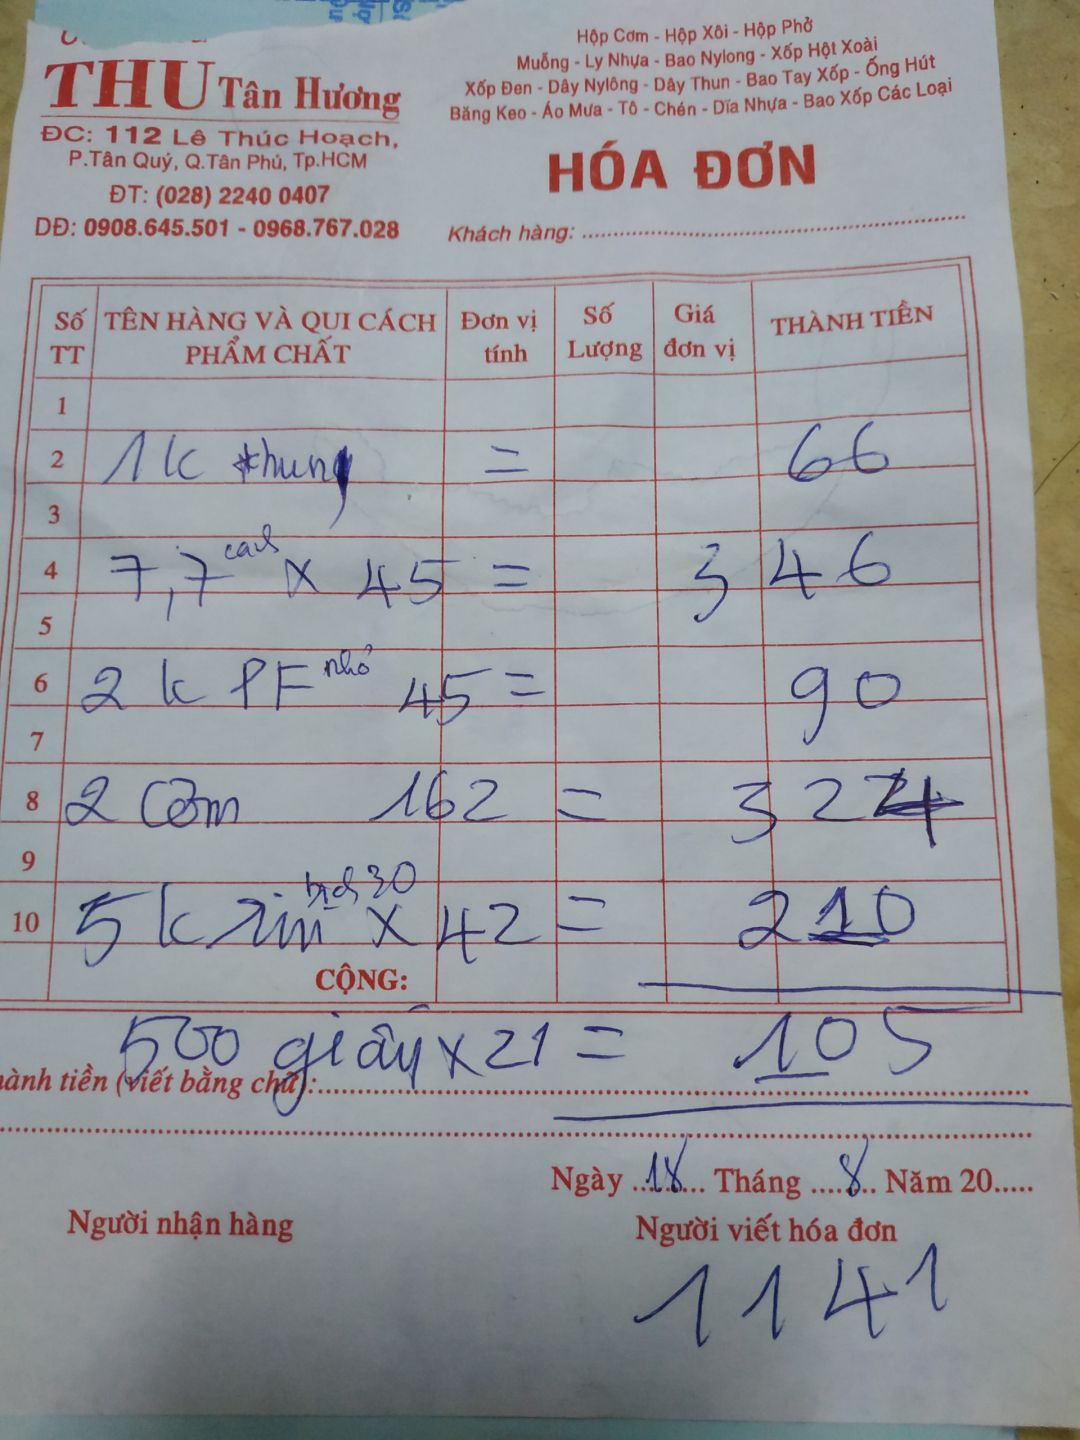 THU Tân Hương
ĐC: 112 Lê Thúc Hoạch,
P.Tân Quý, Q.Tân Phú, Tp.HCM
ĐT: (028) 2240 0407
DĐ: 0908.645.501 - 0968.767.028
Hộp Cơm - Hộp Xôi - Hộp Phở
Muỗng - Ly Nhựa - Bao Nylong - Xốp Hột Xoài
Xốp Đen - Dây Nylông - Dây Thun - Bao Tay Xốp - Ống Hút
Băng Keo - Áo Mưa - Tô - Chén - Dĩa Nhựa - Bao Xốp Các Loại
HÓA ĐƠN
Khách hàng:
Số TT TÊN HÀNG VÀ QUI CÁCH PHẨM CHẤT Đơn vị tính Số Lượng Giá đơn vị THÀNH TIỀN
1
2 1 k thung = 66
3
4 7,7 x 45 = 346
5
6 2 k PF nhỏ 45 = 90
7
8 2 Cơm 162 = 324
9
10 5 k 30 x 42 = 210
CỘNG:
500 giấy x 21 = 105
hành tiền (viết bằng chữ):
Ngày 18 Tháng 8 Năm 20
Người nhận hàng Người viết hóa đơn
1141